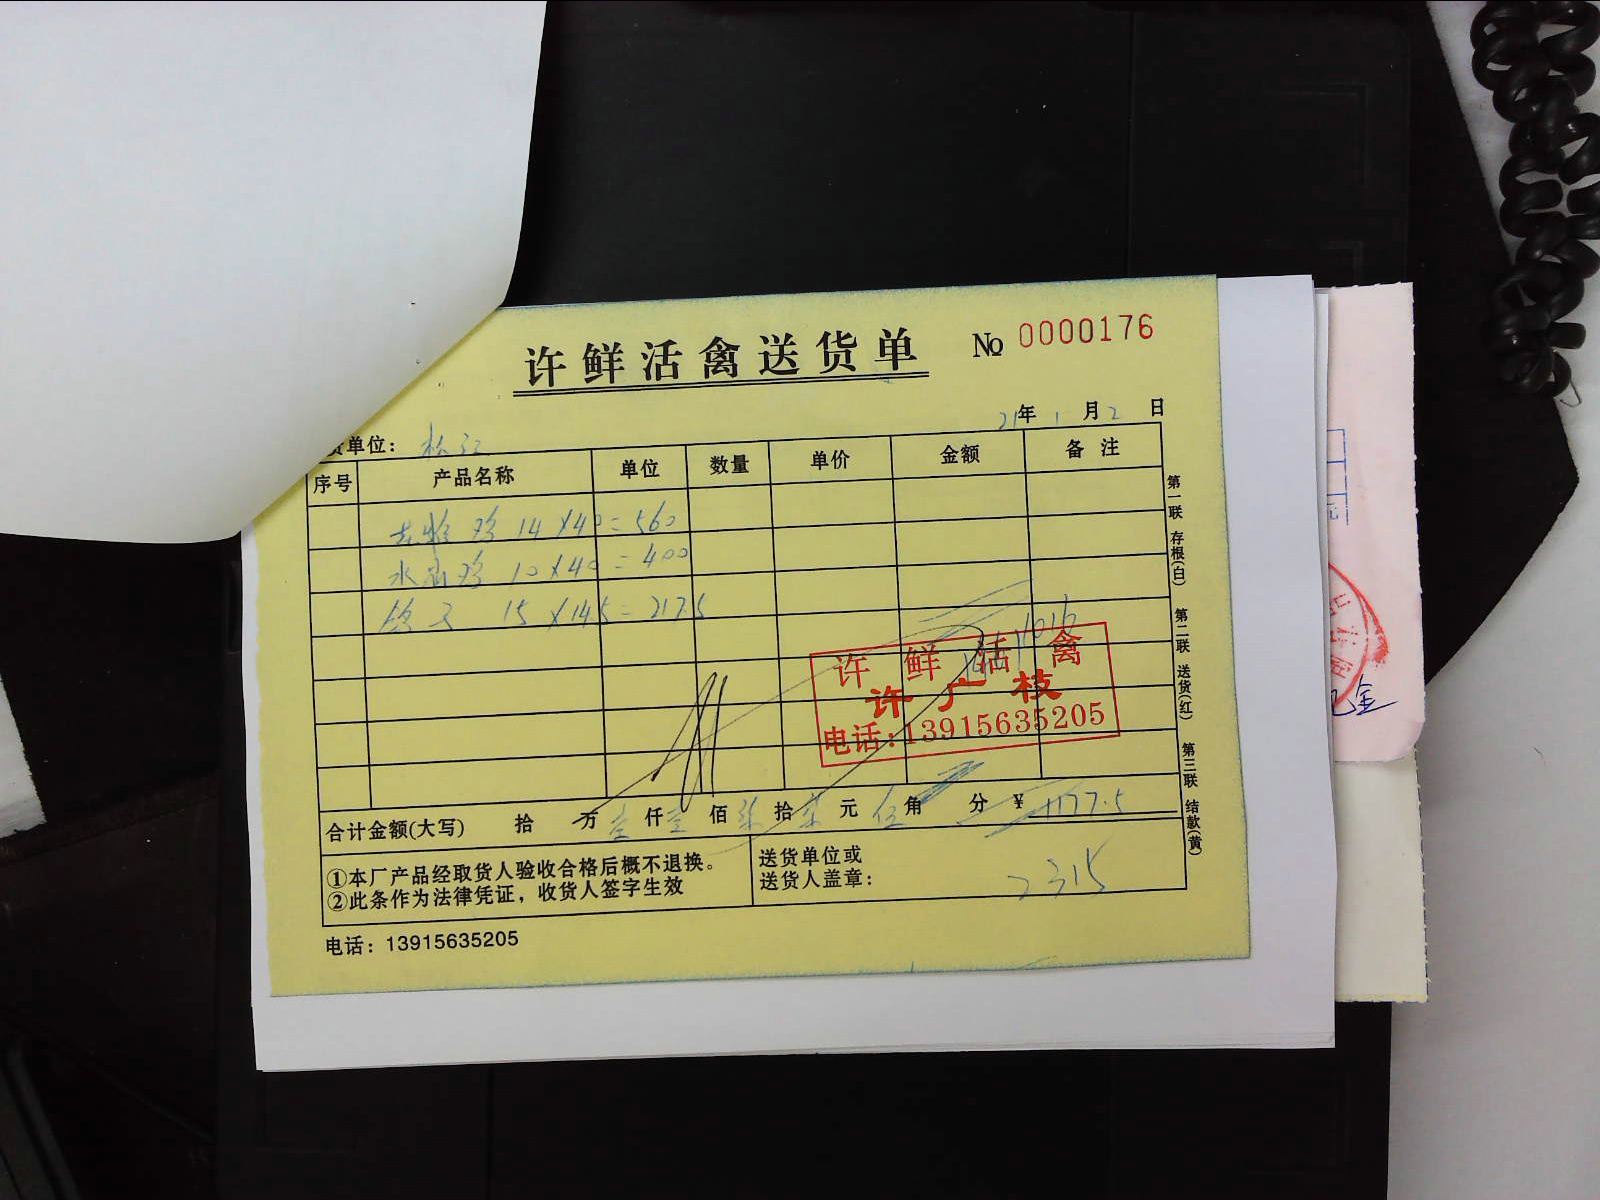 许鲜活禽送货单 No 0000176
21年1月2日
货单位：松江
序号 产品名称 单位 数量 单价 金额 备注
14×40=560
水 10×40=400
15×14.5=217.5
许鲜活禽
许广枝
电话:13915635205
合计金额(大写) 拾 万壹仟壹佰柒拾柒元伍角 分 ¥1177.5
①本厂产品经取货人验收合格后概不退换。
②此条作为法律凭证，收货人签字生效
送货单位或
送货人盖章：
2315
电话：13915635205
第一联 存根(白) 第二联 送货(红) 第三联 结款(黄)